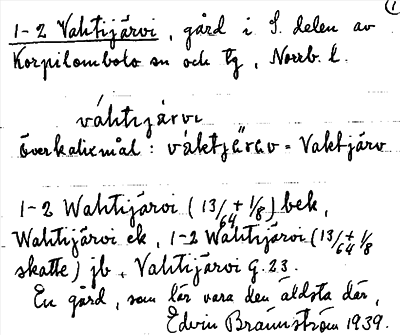 1
1-2 Vahtijärvi, gård i S. delen av
Korpilombolo sn och tg, Norrb. l.
váhtijärvi
Överkalixmål: váktjärav = Vaktjärv
1-2 Wahtijärvi (13/64 + 1/8) bek,
Wahtijärvi ek, 1-2 Wahtijärvi (13/64 + 1/8
skatte) jb, Vahtijärvi G. 23.
En gård, som lär vara den äldsta där,
Edvin Brännström 1939.